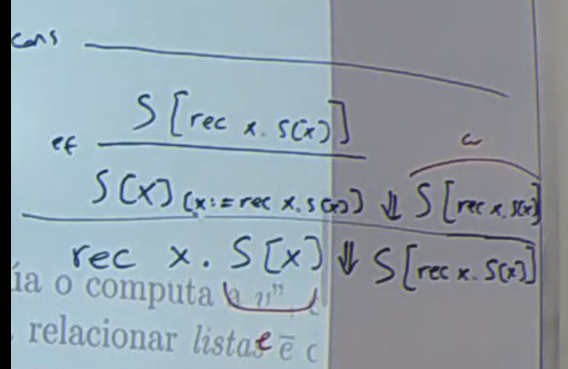 cons
S[rec x. S[x]]
ef
S[x] [x:=rec x. S[x]] ⇓ S[rec x. S[x]]
rec x. S[x] ⇓ S[rec x. S[x]]
ía o computa a v”,
relacionar listas e ē c